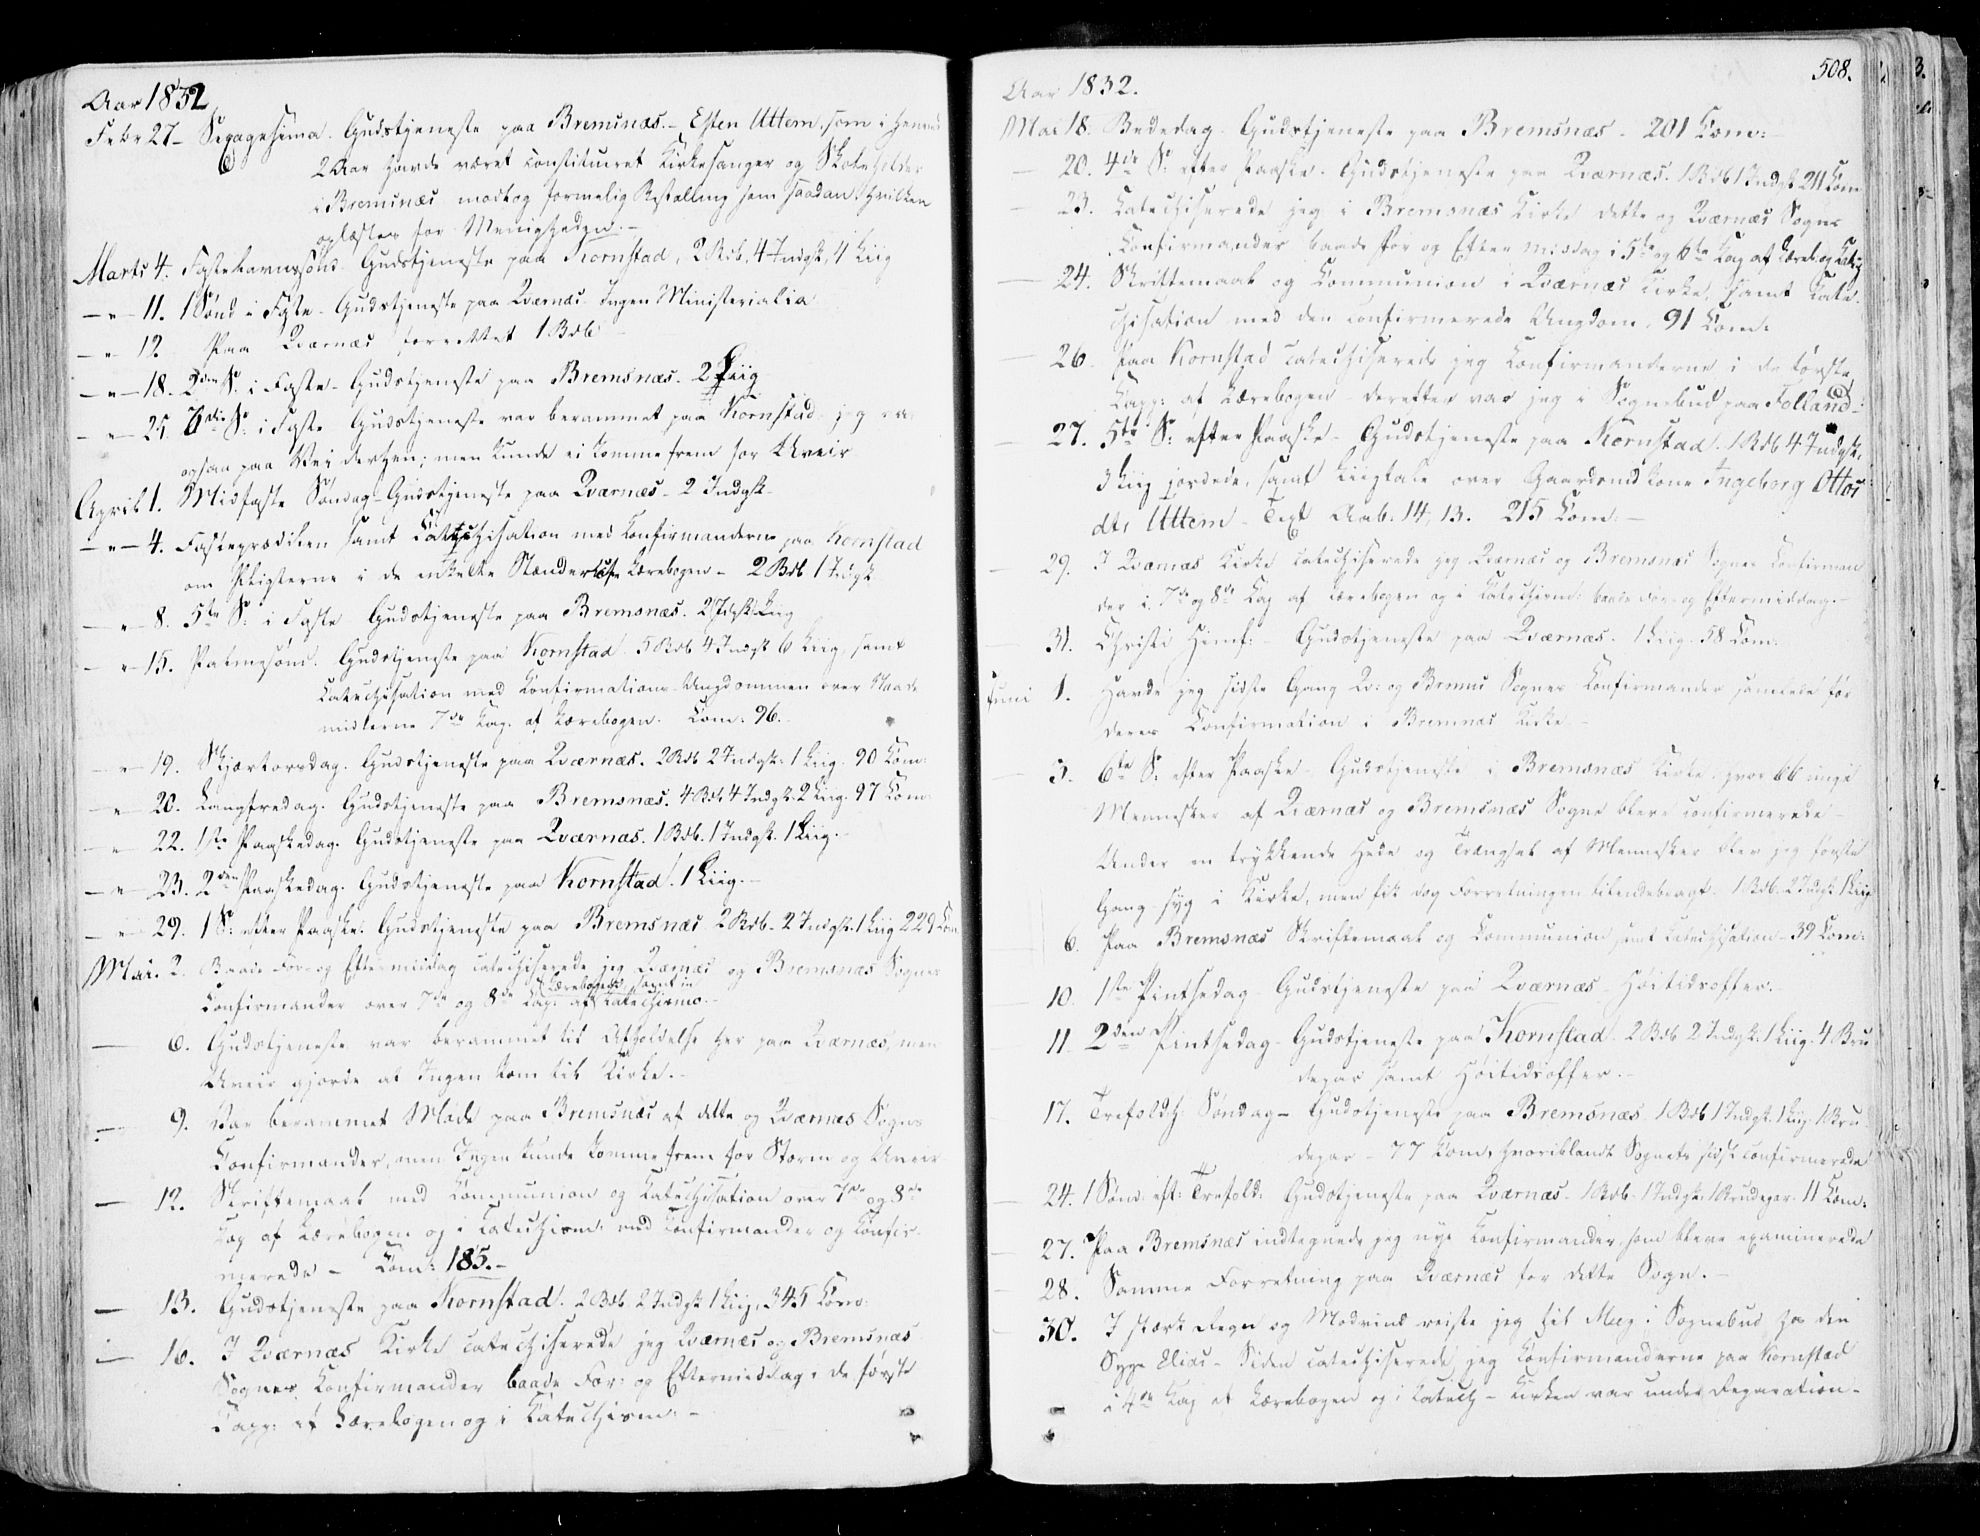 Aar 1832
Febr 27 - Sexagesima. Gudstjeneste paa Bremsnæs. - Esten Uttem, som i henved
2 Aar havde været constitueret Kirkesanger og Skoleholder
i Bremsnæs modtog formelig Bestalling som saadan, hvilken
oplæstes for Menigheden. -
Marts 4. Fastelavnssønd. Gudstjeneste paa Kornstad, 2 Bdb, 4 Indgk, 4 Liig
- " - 11. 1 Sønd i Faste - Gudstjeneste paa Qværnæs. Ingen Ministerialia
- " - 12 Paa Qværnæs forrettet 1 Bdb
- " - 18. 2den S. i Faste - Gudstjeneste paa Bremsnæs. 2 Liig
- " - 25. 3die S: i Faste Gudstjeneste var berammet paa Kornstad, jeg var
ogsaa paa Vei derhen; men kunde ei komme frem for Uveir
April 1. Midfaste Søndag - Gudstjeneste paa Qværnæs - 2 Indgk
- " - 4. Fasteprædiken samt Catechisation med Confirmanderne paa Kornstad
om Pligterne i de enkelte Stænder Lærebogen - 2 Bdb 1 Indgk
- " 8. 5te S: i Faste Gudstjeneste paa Bremsnæs. 2 Idgk Liig
- " 15. Palmesønd. Gudstjeneste paa Kornstad. 5 Bdb 4 Indgk 6 Liig, samt
Catechisation med Confirmations-Ungdommen over Naade
midlerne 7de Cap. af Lærebogen. Com: 96.
- " 19. Skjærtorsdag. Gudstjeneste paa Qværnæs. 2 Bdb 2 Indgk: 1 Liig. 90 Com:
" 20. Langfredag. Gudstjeneste paa Bremsnæs. 4 Bdb 4 Indgk. 2 Liig. 97 Com
- " 22. 1ste Paaskedag. Gudstjeneste paa Qværnæs. 1 Bdb. 1 Indgk. 1 Liig. -
- " - 23. 2den Paaskedag. Gudstjeneste paa Kornstad. 1 Liig. -
- " 29. 1 S: efter Paaske. Gudstjeneste paa Bremsnæs 2 Bdb. 2 Indgk. 1 Liig 229 Com.
Mai. 2. Baade For- og Eftermiddag catechiserede jeg Qværnæs og Bremsnæs Sognes
Lærebogen samt in
Confirmander over 7de og 8de Cap. af Catechismo. -
6. Gudstjeneste var berammet til Afholdelse her paa Qværnæs, men
Uveir gjorde at Ingen kom til Kirke. -
9. Var berammet Møde paa Bremsnæs af dette og Qværnæs Sognes
Confirmander, men Ingen kunde komme frem for Storm og Uveir
12. Skriftemaal med Communion og Catechisation over 7de og 8de
Cap af Lærebogen og i Catechism: med Confirmander og Confir-
merede - Com: 185. -
13. Gudstjeneste paa Kornstad. 2 Bdb. 2 Indgk 1 Liig, 345 Com:
16. I Qværnæs Kirke catechiserede jeg Qværnæs og Bremsnæs
Sognes Confirmander baade For: og Eftermiddag i de første
Capp: af Lærebogen og i Catechism: -
508.
Aar 1832.
Mai 18. Bededag. Gudstjeneste paa Bremsnæs - 201 Com: -
- 20. 4de S: efter Paaske. Gudstjeneste paa Qværnæs. 1 Bdb 1 Indgk 211 Com
- 23. Catechiserede jeg i Bremsnæs Kirke dette og Qværnæs Sogns
Confirmander baade For og Efter middag i 5te og 6te Cap af Læreb. og Catech
- 24. Skriftemaal og Communion i Qværnæs Kirke, samt Cate-
chisation med den confirmerede Ungdom. 91 Com:
- 26. Paa Kornstad catechiserede jeg Confirmanderne i de første
Capp: af Lærebogen - derefter var jeg i Sognebud paa Folland -
- 27. 5te S: efter Paaske - Gudstjeneste paa Kornstad. 1 Bdb 4 Indgk:
3 Liig jordede, samt Liigtale over Gaardmdkone Ingeborg Ottos
dtr Uttem - Text Aab: 14, 13. 215 Com: -
- 29. I Qværnæs Kirke catechiserede jeg Qværnæs og Bremsnæs Sognes Confirman
der i 7de og 8de Cap af Lærebogen og i Catechism: baade For- og Eftermiddag. -
- 31. Christi Himf: - Gudstjeneste paa Qværnæs. 1 Liig. 58 Com:
Juni 1. Havde jeg sidste Gang Qv: og Bremsn Sognes Confirmander samlede før
deres Confirmation i Bremsnæs Kirke -
- 3. 6te S: efter Paaske. Gudstjeneste i Bremsnæs Kirke, hvor 66 unge
Mennesker af Qværnæs og Bremsnæs Sogne bleve confirmerede -
Under en trykkende Hede og Trængsel af Mennesker blev jeg første
Gang syg i Kirke, men fik dog Forretningen tilendebragt. 1 Bdb. 2 Indgk: 1 Liig
6. Paa Bremsnæs Skriftemaal og Communion samt Catechisation - 39 Com:
10. 1ste Pintsedag - Gudstjeneste paa Qværnæs - Høitidsoffer. -
11. 2den Pintsedag - Gudstjeneste paa Kornstad. 2 Bdb 2 Indgk: 1 Liig. 4 Bru
depar samt Høitidsoffer. -
17. Trefoldh: Søndag - Gudstjeneste paa Bremsnæs. 1 Bdb 1 Indgk. 1 Liig. 1 Bru
depar - 77 Com, hvoriblandt Sognets sidst confirmerede
24. 1 Sønd: eft: Trefold: Gudstjeneste paa Qværnæs - 1 Bdb - 1 Indgk: 1 Brudepar: 11 Com:
27. Paa Bremsnæs indtegnede jeg nye Confirmander, som bleve examinerede
28. Samme Forretning paa Qværnæs for dette Sogn. -
30. I stærk Regn og Modvind reiste jeg til Meeg i Sognebud hos den
Syge Elias - Siden catechiserede jeg Confirmanderne paa Kornstad
i 4de Cap af Lærebogen og i Catech - Kirken var under Reparation -